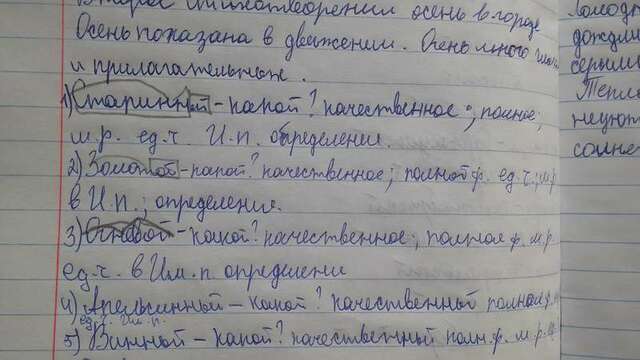 Второе стихотворении осень в городе
Осень показана в движении. Очень много
и прилагательных.
1) Старинный - какой? качественное; полное;
м.р. ед.ч. И.п. определения.
2) Золотой - какой? качественное; полной ф. ед.ч.; м.р
в И.п.; определения.
3) Огневой - какой? качественное; полная ф. м.р.
ед.ч. в Им.п. определени
4) Апельсинный - какой? качественный полном
ед.ч. Им.п.
5) Винный - какой? качественный полн.ф. м.р.
володи
дождли
серыми
Тепло
неуют
солне